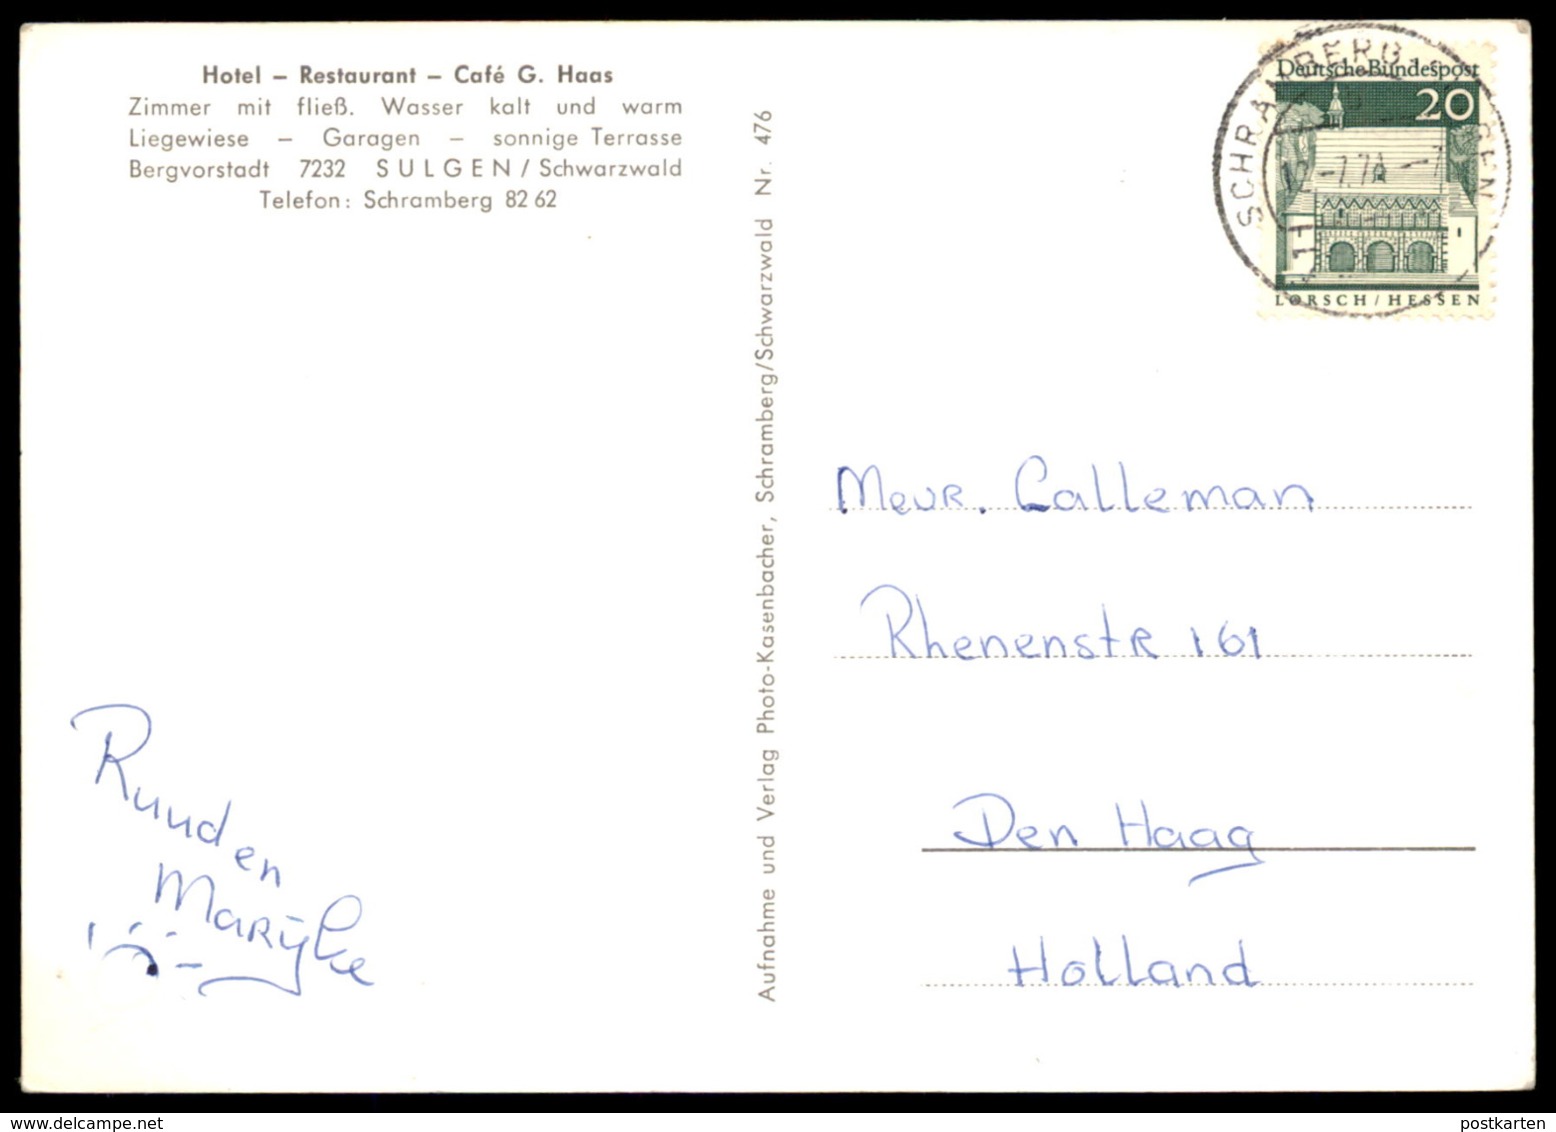 Hotel – Restaurant – Café G. Haas
Zimmer mit fließ. Wasser kalt und warm
Liegewiese – Garagen – sonnige Terrasse
Bergvorstadt 7232 SULGEN / Schwarzwald
Telefon: Schramberg 82 62
Aufnahme und Verlag Photo-Kasenbacher, Schramberg/Schwarzwald Nr. 476
Deutsche Bundespost
20
LORSCH / HESSEN
SCHRAMBERG
Mevr. Calleman
Rhenenstr 161
Den Haag
Holland
Ruud en
Marijke
postkarten